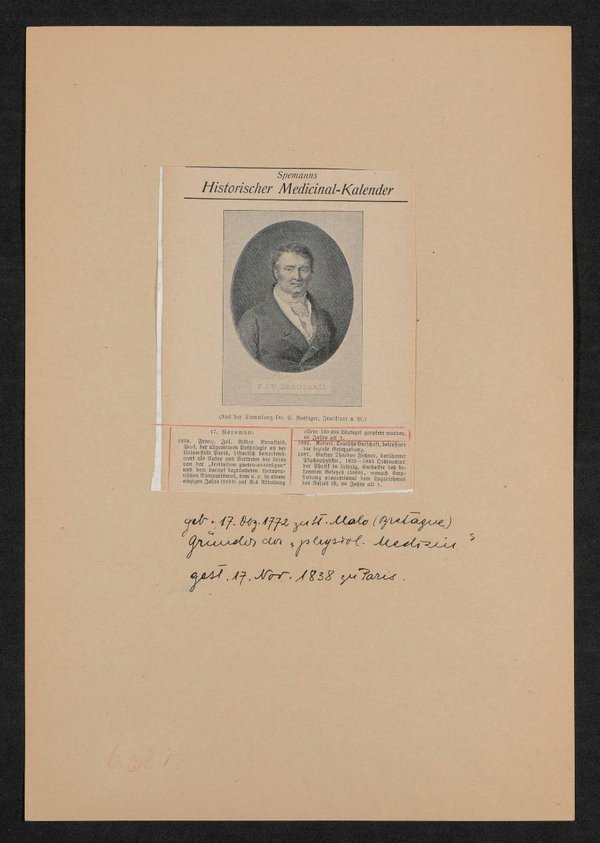 Spemanns
Historischer Medicinal-Kalender
F. J. V. BROUSSAIS
(Aus der Sammlung Dr. E. Roediger, Frankfurt a. M.)
17. November.
1838. Franç. Jos. Victor Broussais,
Prof. der allgemeinen Pathologie an der
Universität Paris, historisch bemerkens-
wert als Autor und Vertreter der Lehre
von der „Irritation gastro-entérique“
und dem darauf begründeten therapeu-
tischen Vampyrismus, dem u. a. in einem
einzigen Jahre (1819) auf B.s Abteilung
allein 100 000 Blutegel geopfert wurden,
66 Jahre alt †.
1881. Kaiserl. Deutsche Botschaft, betreffend
die soziale Gesetzgebung.
1887. Gustav Theodor Fechner, berühmter
Psychophysiker, 1835—1843 Ordinarius
der Physik in Leipzig, Entdecker des be-
rühmten Gesetzes (1860), wonach Emp-
findung proportional dem Logarithmus
des Reizes ist, 86 Jahre alt †.
geb. 17. Dez. 1772 zu St. Malo (Bretagne)
Gründer der „physiol. Medizin“
gest. 17. Nov. 1838 zu Paris.